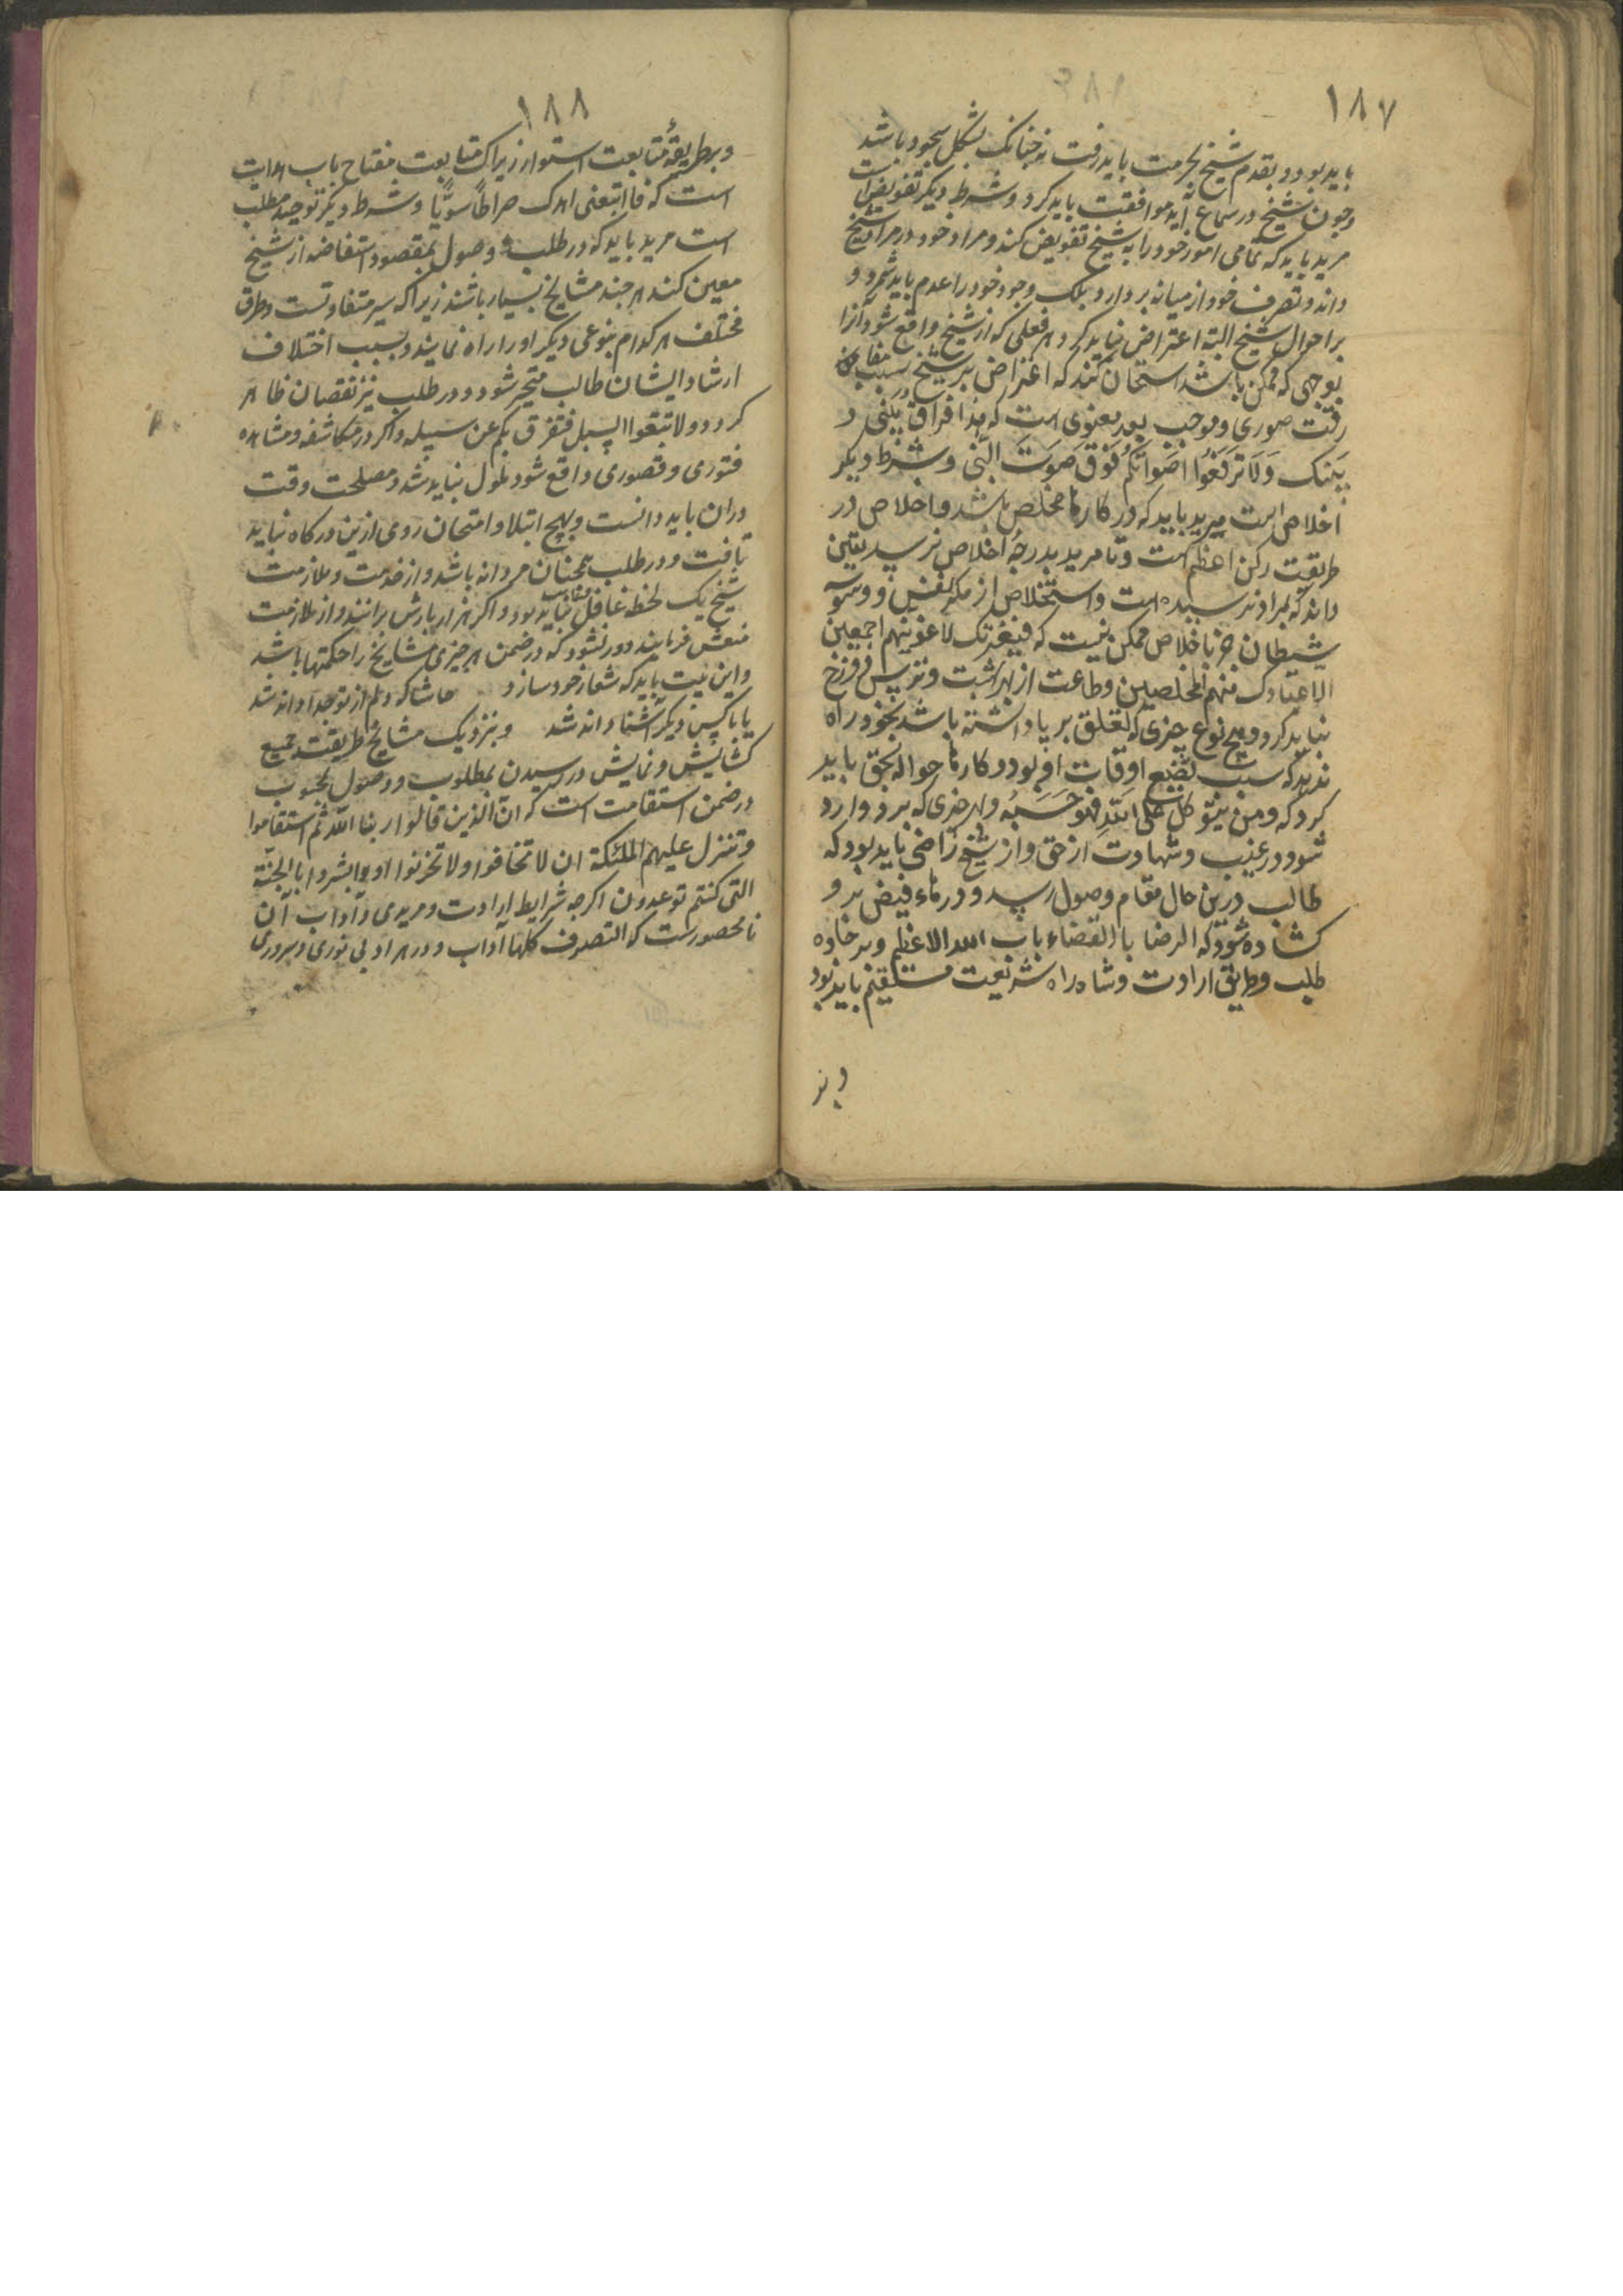 ۱۸۷
باید بود و بقدم شیخ بحرمت باید رفت نه چنانک بشکل سجود باشد
وچون شیخ در سماع آید موافقت باید کرد وشرط دیکر تفویض است
مرید باید که تمامی امور خود را به شیخ تفویض کند ومراد خود در مراد شیخ
داند وتصرف خود از میانه بردارد بلک وجود خود را عدم باید شمرد و
بر احوال شیخ البته اعتراض نباید کرد وهر فعلی که از شیخ واقع شود آنرا
بوجهی که ممکن باشد استحسان کند که اعتراض بر شیخ سبب مفارقت
رقت صوری وموجب بعد معنوی است که هذا فراق بینی و
بینک ولا ترفعوا اصواتکم فوق صوت النبی وشرط دیکر
اخلاص است مرید باید که در کارها مخلص باشد واخلاص در
طریقت رکن اعظم است وتا مرید بدرجۀ اخلاص نرسد یقین
داند که بمراد نرسیده است واستخلاص از مکر نفس ووسوسه
شیطان جز باخلاص ممکن نیست که فبعزتک لاغوینهم اجمعین
الا عبادک منهم المخلصین وطاعت از بهر بهشت وترس دوزخ
نباید کرد وهیچ نوع چیزی که تعلق بریا داشته باشد بخود راه
ندهد که سبب تضیع اوقات او بود وکارها حواله بحق باید
کرد که ومن یتوکل علی الله فهو حسبه وهر چیزی که برو وارد
شود در غیب وشهادت از حق واز شیخ راضی باید بود که
طالب درین حال بمقام وصول رسد ودرهاء فیض برو
کشاده شود که الرضا بالقضاء باب الله الاعظم وبر جاده
طلب وطریق ارادت وشاه راه شریعت مستقیم باید بود
وبر
۱۸۸
وبر طریقۀ متابعت استوار زیراک متابعت مفتاح باب هدایت
است که فاتبعنی اهدک صراطا سویا وشرط دیکر توحید مطلب
است مرید باید که در طلب وصول بمقصود استفاضه از شیخ
معین کند هر چند مشایخ بسیار باشند زیرا که سیر متفاوتست وطرق
مختلف هر کدام بنوعی دیکر او را راه نمایند وبسبب اختلاف
ارشاد ایشان طالب متحیر شود ودر طلب نیز نقصان ظاهر
کردد ولا تتبعوا السبل فتفرق بکم عن سبیله واکر در مکاشفه ومشاهده
فتوری وقصوری واقع شود ملول نباید شد ومصلحت وقت
دران باید دانست وبهیچ ابتلا وامتحان روی ازین درکاه نباید
تافت ودر طلب همچنان مردانه باشد واز خدمت وملازمت
شیخ یک لحظه غافل نباید بود واکر هزار بارش برانند واز ملازمت
منعش فرمایند دور نشود که در ضمن هر چیزی مشایخ را حکمتها باشد
واین بیت باید که شعار خود سازد حاشا که دلم از تو جدا داند شد
یا با کس دیکر آشنا داند شد وبنزدیک مشایخ طریقت جمیع
کشایش ونمایش در رسیدن بمطلوب ووصول بمحبوب
در ضمن استقامت است که ان الذین قالوا ربنا الله ثم استقاموا
وتتنزل علیهم الملئکة ان لا تخافوا ولا تحزنوا وابشروا بالجنة
التی کنتم توعدون اکرچه شرایط ارادت ومریدی وآداب آن
نامحصورست که التصوف کلها آداب ودر هر ادبی نوری وسروری